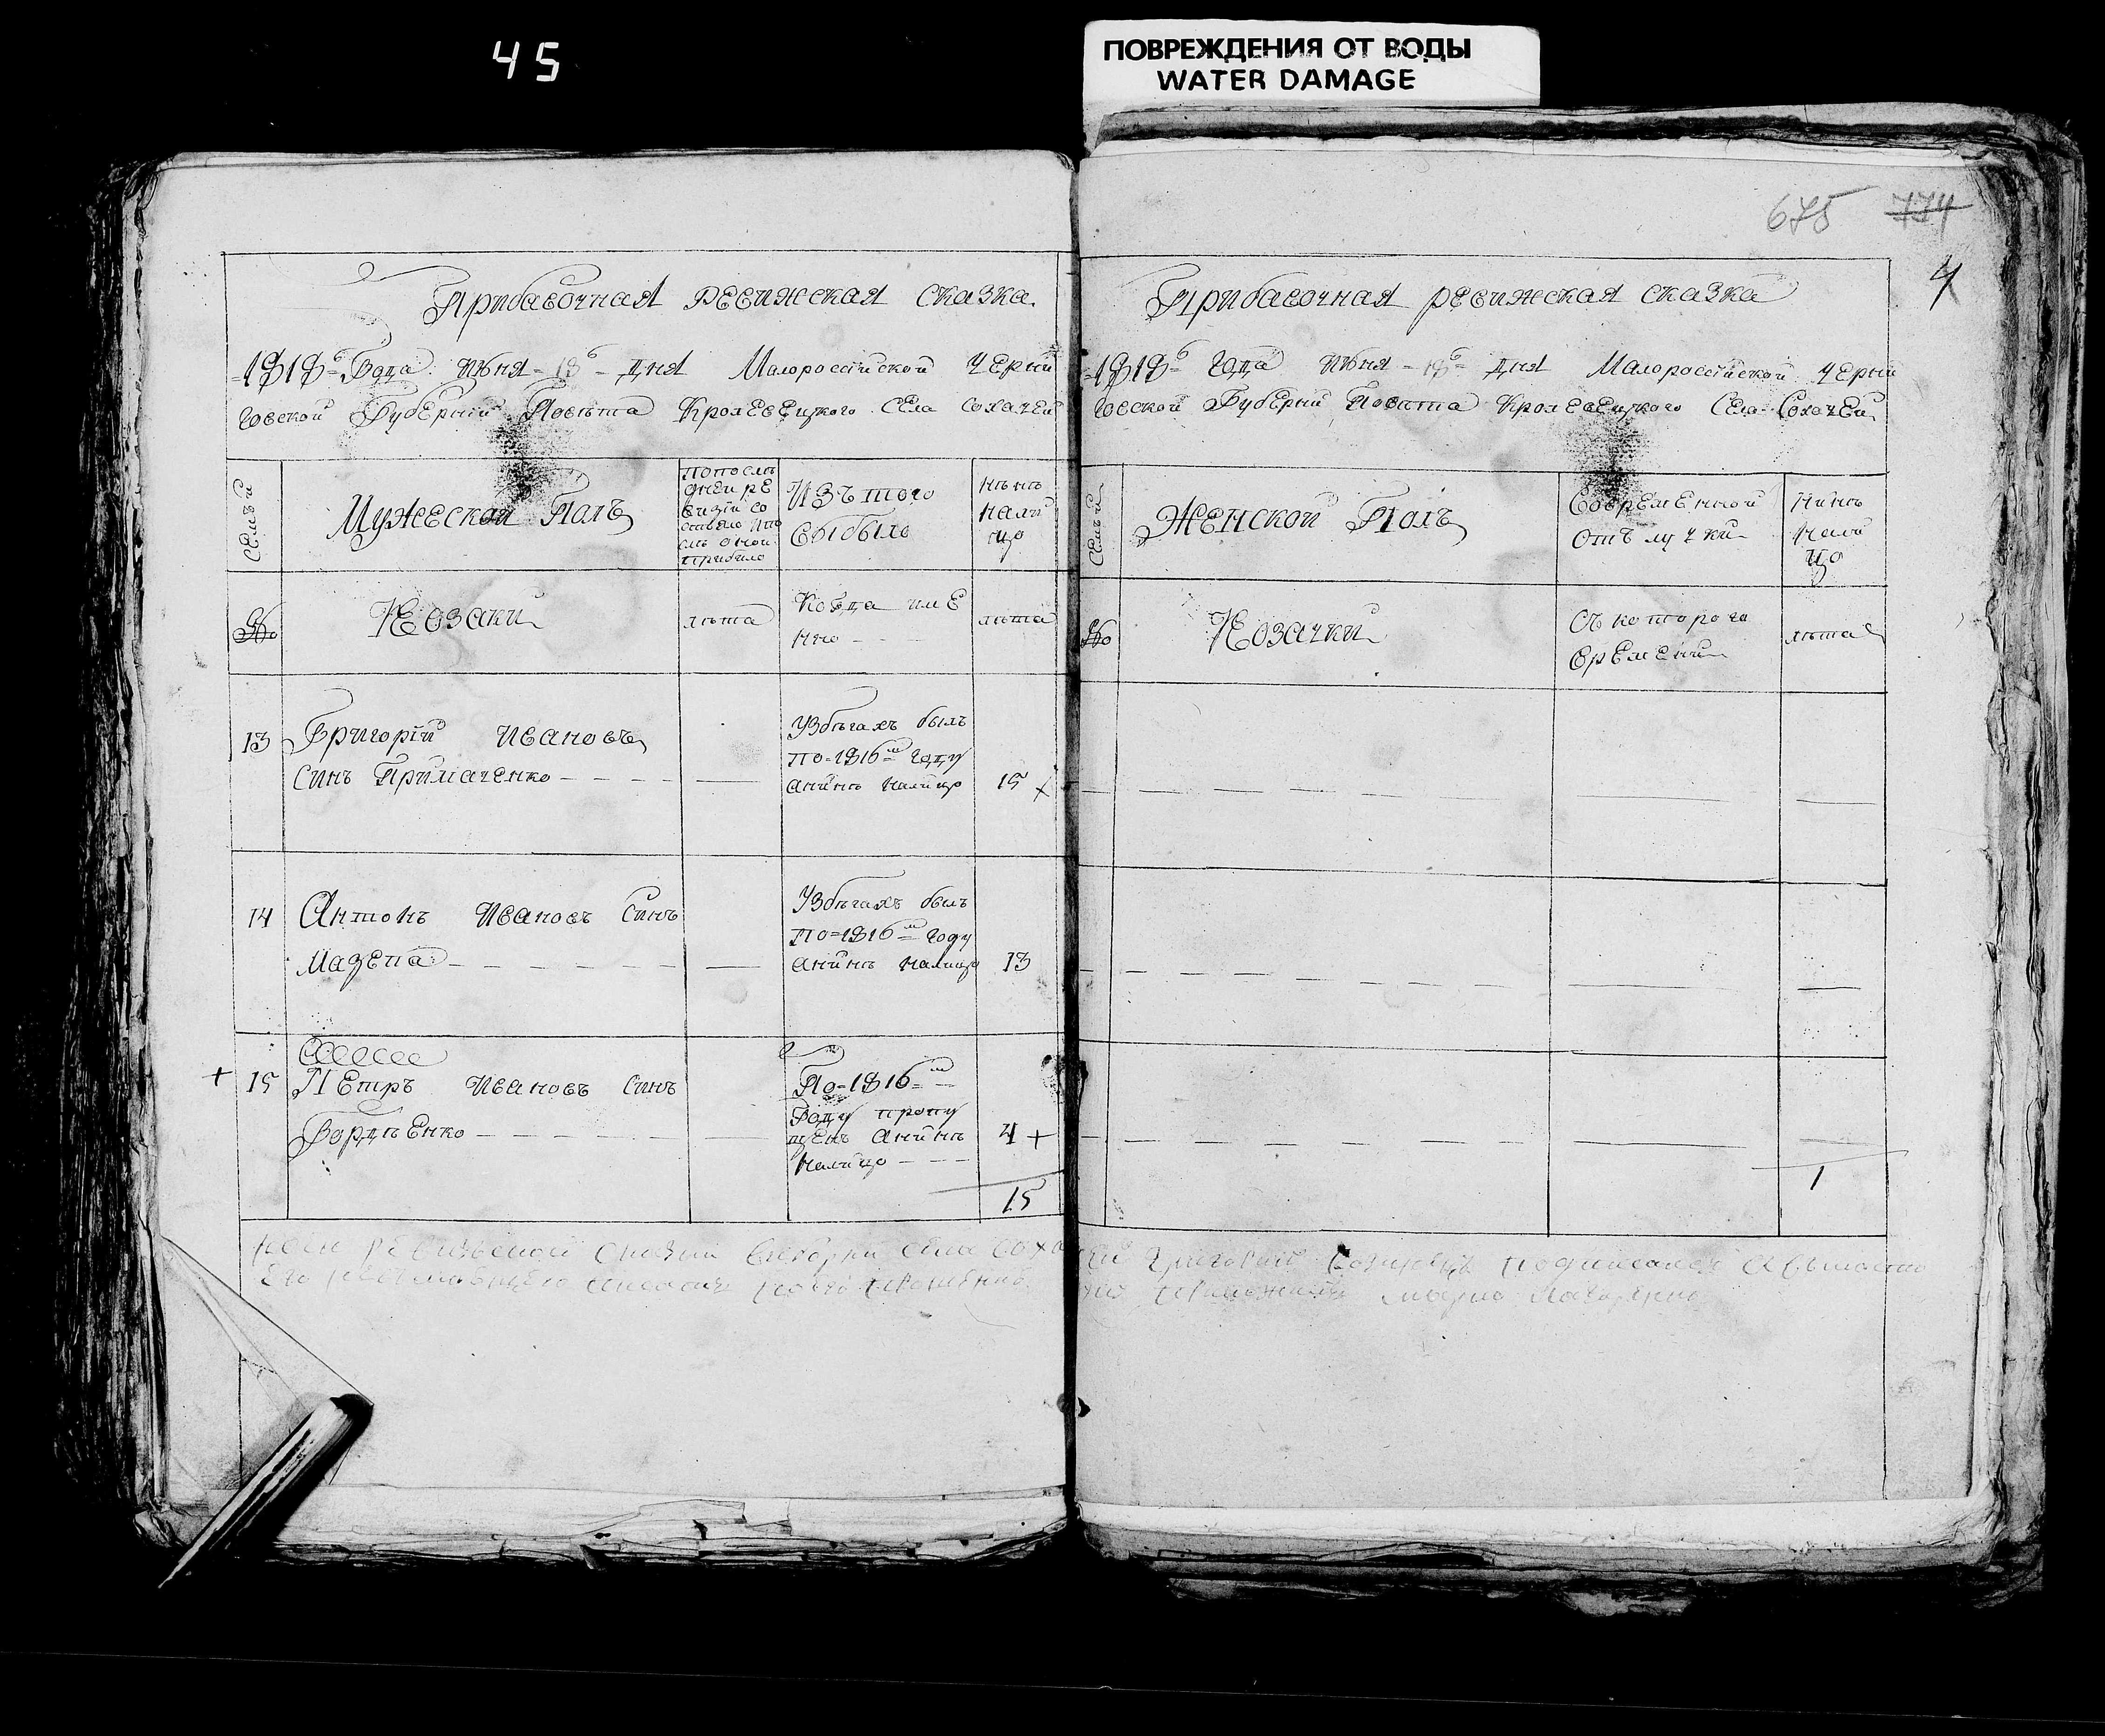 45
ПОВРЕЖДЕНИЯ ОТ ВОДЫ
WATER DAMAGE
Прибавочная ревижская сказка.
1818го Года июня 18го дня Малороссійской Черни
говской Губерніи Повѣта Кролевецкого села Сохачей
Семьи
Мужеской Полъ
По после
дней ре
визіи со
стояло и по
слѣ оной
прибыло
Изъ того
выбыло
Нынѣ
нали
цо
№
Козаки
лѣта
Когда име
нно
лѣта
13
Григорій Ивановъ
Синъ Примаченко
Узбѣгахъ былъ
по 1816м году
а нинѣ налицо
15
14
Антонъ Ивановъ Синъ
Мазепа
Узбѣгахъ былъ
по 1816м году
а нинѣ налицо
13
15
Петръ Ивановъ Синъ
Гордѣенко
По 1816м
Году пропу
щенъ а нинѣ
налицо
4
15
675 774
4
Прибавочная ревижская сказка
1818го года июня 18го дня Малороссійской Черни
говской Губерніи Повѣта Кролевецкого Села Сохачей
Семьи
Женской Полъ
Вовременной
отълучки
Нинѣ
нали
цо
№
Козачки
Съ которого
времени
лѣта
1